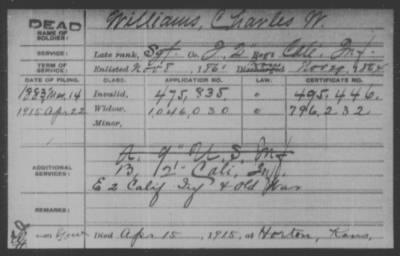 DEAD
NAME OF SOLDIER:
Williams, Charles W.
SERVICE:
Late rank, Sgt. Co. I, 2 Reg't Cala. Inf.
TERM OF SERVICE:
Enlisted Nov 8, 186 Discharged Nov 29, 186
DATE OF FILING. CLASS. APPLICATION NO. LAW. CERTIFICATE NO.
1883 Mar. 14 Invalid, 475,835. 495,446.
1915 Apr 22 Widow, 1046,030 796,232
Minor,
ADDITIONAL SERVICES:
A. 9" U. S. Inf
B, 2" Cali, Inf.
E 2 Calif Inf & Old War
REMARKS:
Died Apr 15, 1915, at Horton, Kans.